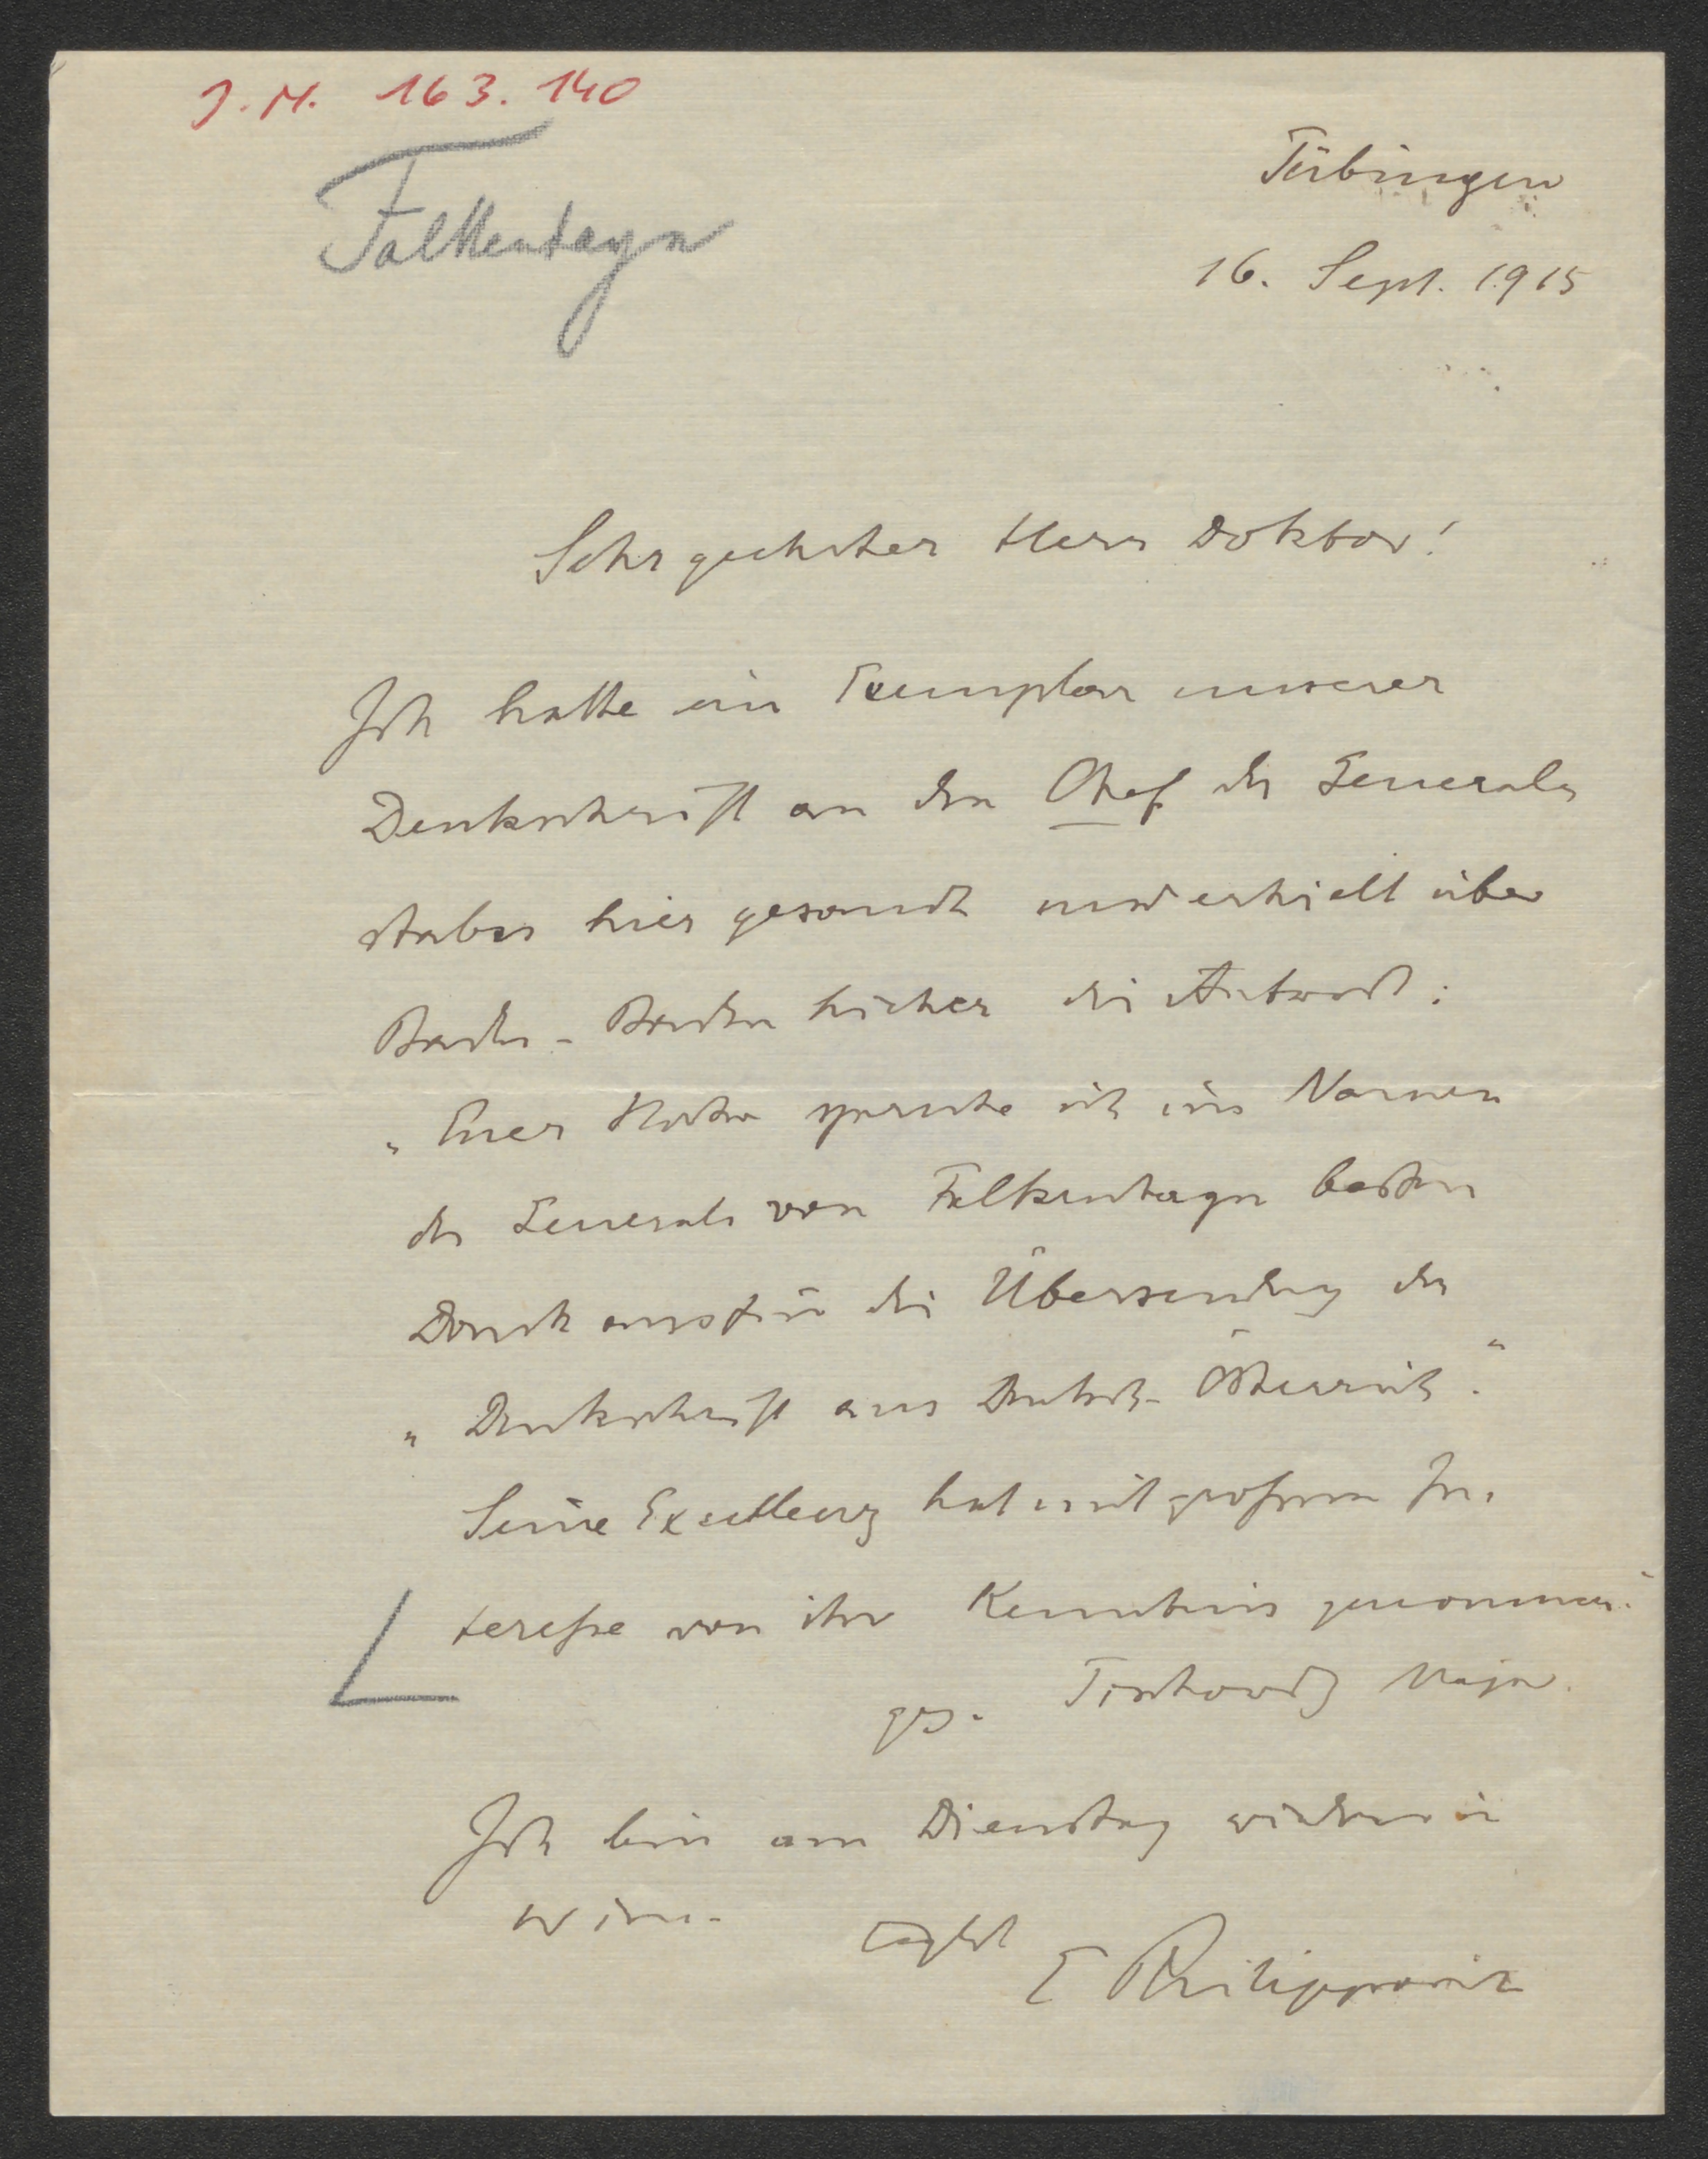 J. N. 163.140
Falkenhayn
Tübingen
16. Sept. 1915
Sehr geehrter Herr Doktor!
Ich hatte ein Exemplar unserer
Denkschrift an den Chef des General-
stabes hier gesandt und erhielt über
Baden-Baden hieher die Antwort:
„Euer Hochw spreche ich im Namen
des Generals von Falkenhayn besten
Dank aus für die Übersendung der
„Denkschrift aus Deutsch-Österreich."
Seine Excellenz hat mit großem In-
teresse von ihr Kenntnis genommen."
gez. Major
Ich bin am Dienstag wieder in
Wien.
E Philippovich